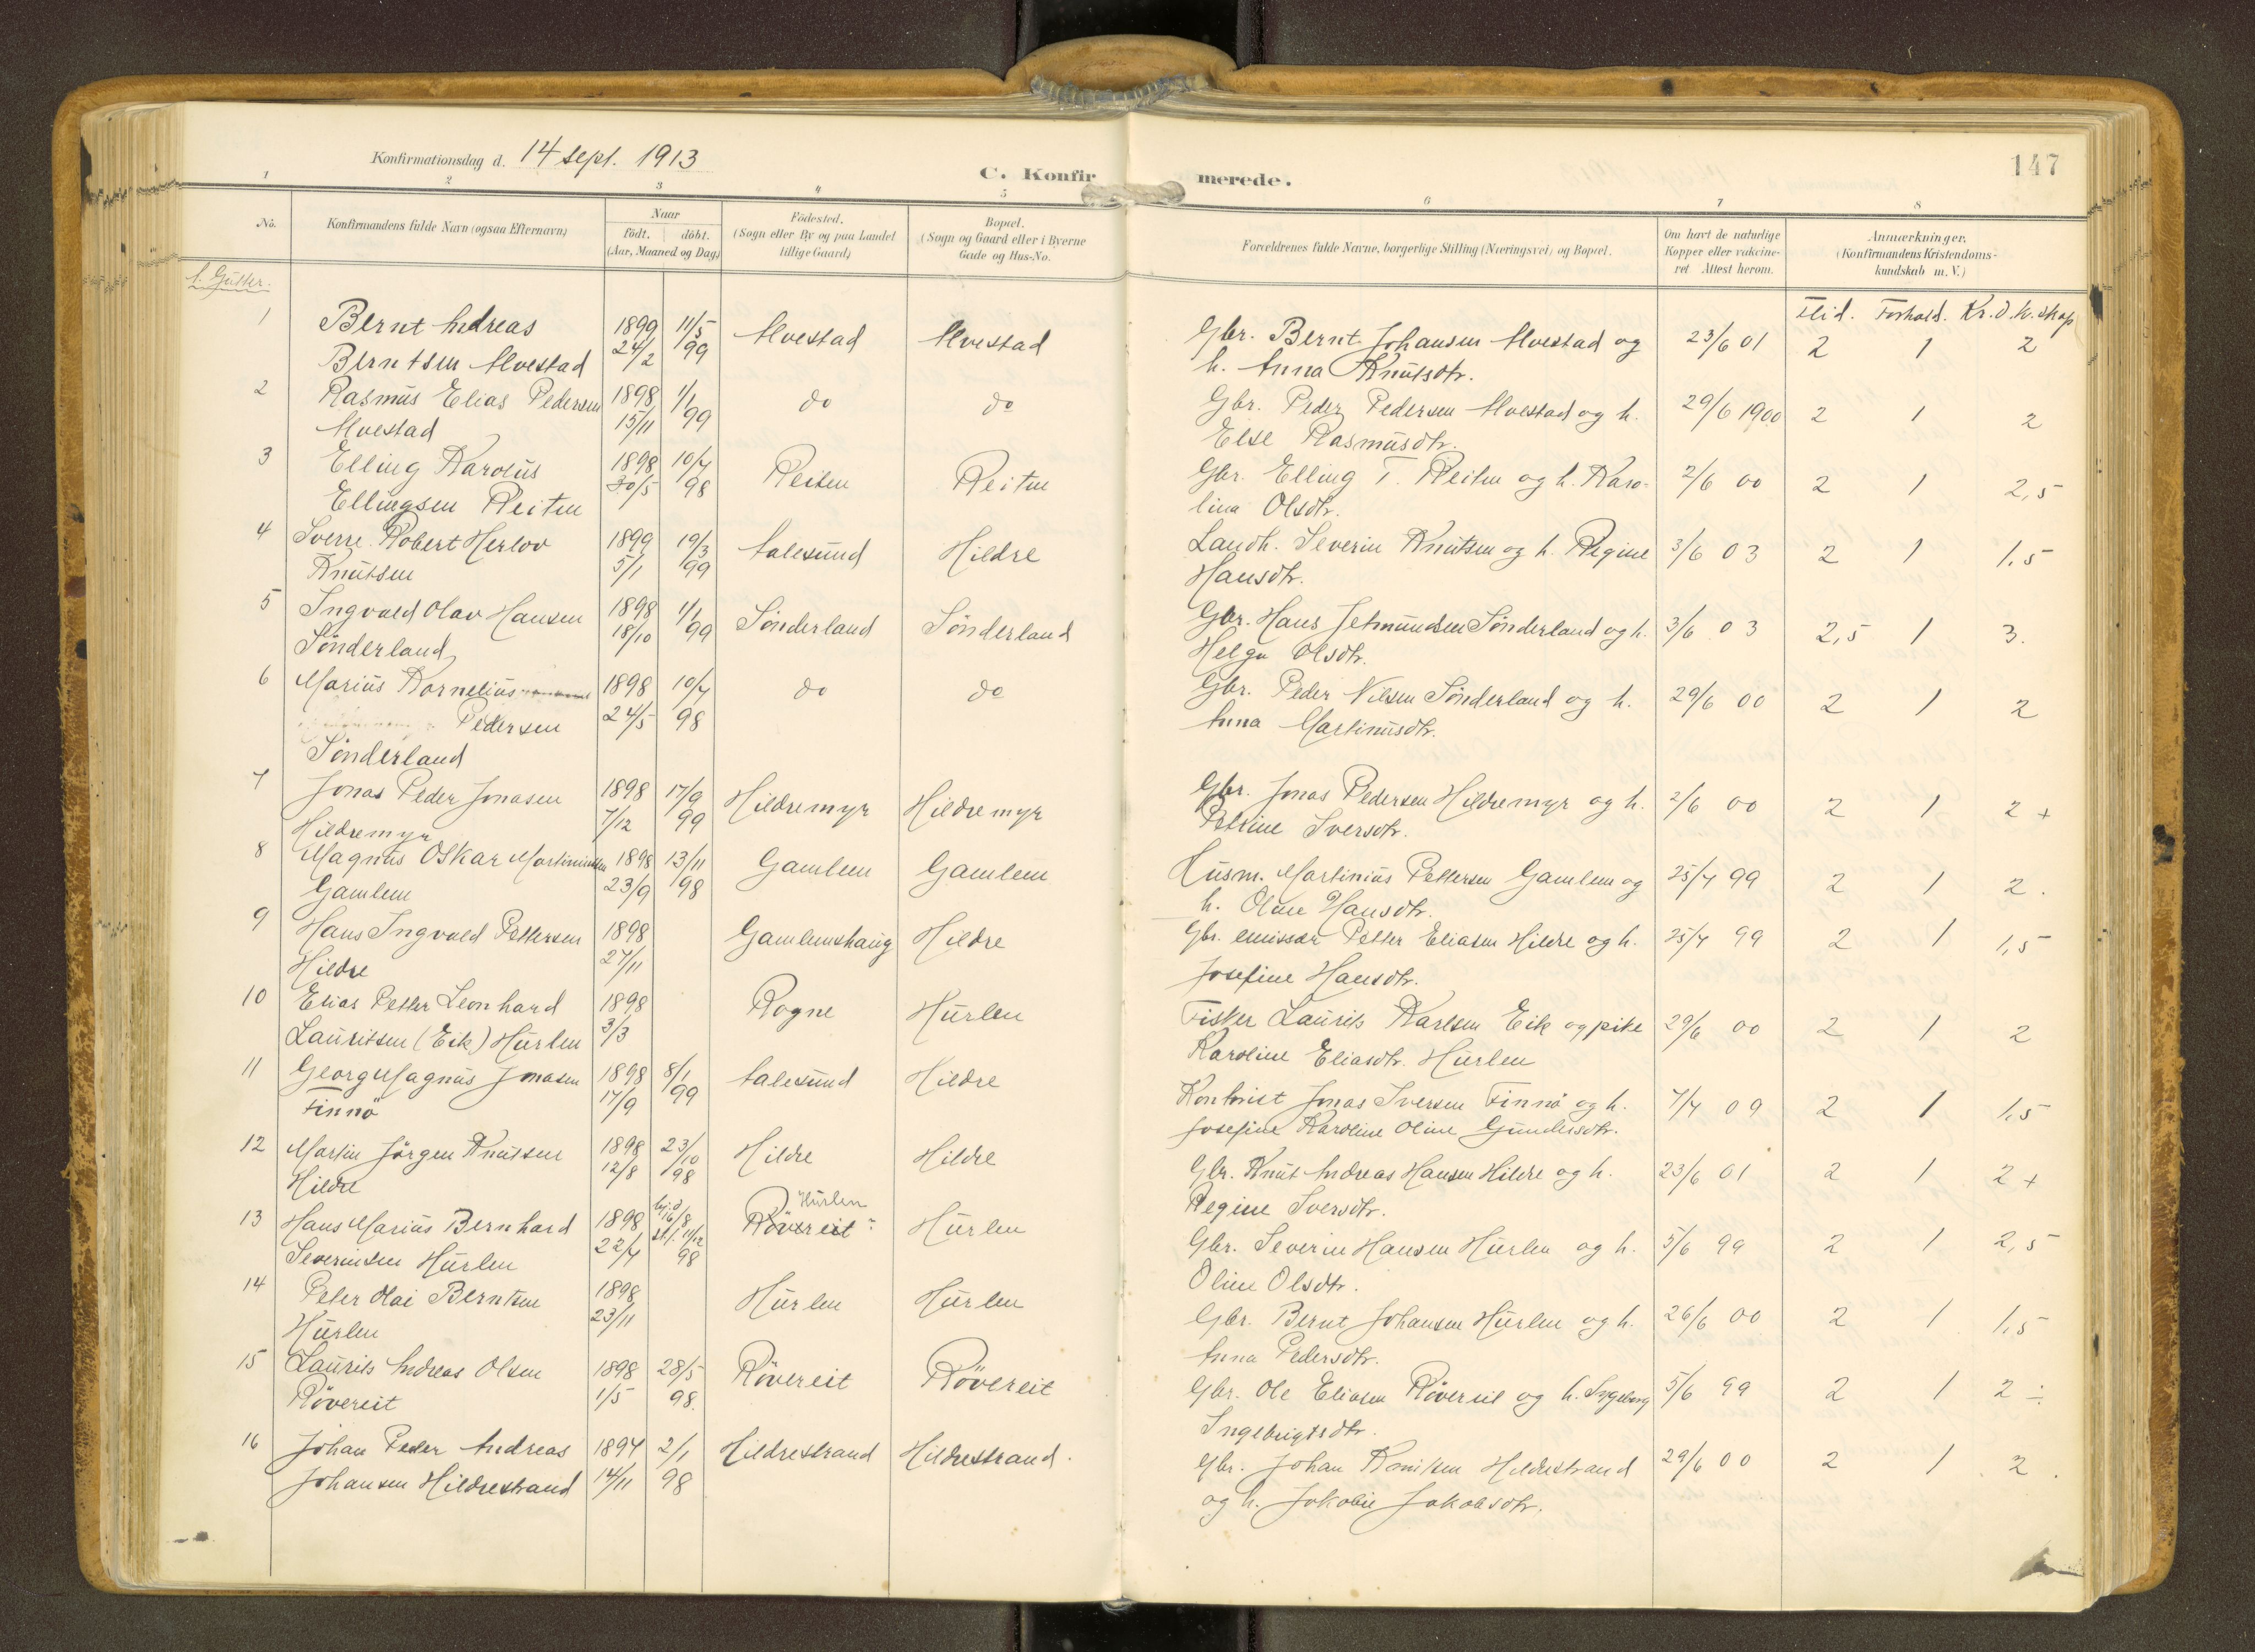 Konfirmationsdag d. 14 sept. 1913
C. Konfirmerede.
147
1 2 3 4 5 6 7 8
No.
Konfirmandens fulde Navn (ogsaa Efternavn)
Naar
födt. döbt.
(Aar, Maaned og Dag)
Födested.
(Sogn eller By og paa Landet
tillige Gaard)
Bopæl.
(Sogn og Gaard eller i Byerne
Gade og Hus-No.
Forældrenes fulde Navne, borgerlige Stilling (Næringsvei) og Bopæl.
Om havt de naturlige
Kopper eller vakcine-
ret. Attest herom.
Anmærkninger.
(Konfirmandens Kristendoms-
kundskab m. V.)
1. Gutter.
Flid. Forhold. Kr.d.k.skap
1 Bernt Andreas 1899 11/5 Alvestad Alvestad Gbr. Bernt Johansen Alvestad og 23/6 01 2 1 2
Berntsen Alvestad 24/2 99 h. Anna Knutsdtr.
2 Rasmus Elias Pedersen 1898 1/1 do do Gbr. Peder Pedersen Alvestad og h. 29/6 1900 2 1 2
Alvestad 15/11 99 Else Rasmusdtr.
3 Elling Karolus 1898 10/7 Reiten Reiten Gbr. Elling T. Reiten og h. Karo- 2/6 00 2 1 2,5
Ellingsen Reiten 30/5 98 lina Olsdtr.
4 Sverre Robert Herlov 1899 19/3 Aalesund Hildre Landh. Severin Knutsen og h. Regine 3/6 03 2 1 1,5
Knutsen 5/1 99 Hansdtr.
5 Ingvald Olav Hansen 1898 1/1 Sönderland Sönderland Gbr. Hans Jetmundsen Sönderland og h. 3/6 03 2,5 1 3.
Sönderland 18/10 99 Helga Olsdtr.
6 Marius Kornelius 1898 10/7 do do Gbr. Peder Nilsen Sönderland og h. 29/6 00 2 1 2
Pedersen 24/5 98 Anna Martinusdtr.
Sönderland
7 Jonas Peder Jonasen 1898 17/9 Hildremyr Hildremyr Gbr. Jonas Pedersen Hildremyr og h. 2/6 00 2 1 2+
Hildremyr 7/12 99 Petrine Iversdtr.
8 Magnus Oskar Martiniussen 1898 13/11 Gamlem Gamlem Husm. Martinius Pettersen Gamlem og 25/7 99 2 1 2.
Gamlem 23/9 98 h. Oline Hansdtr.
9 Hans Ingvald Pettersen 1898 Gamlemshaug Hildre Gbr. emissær Petter Eliasen Hildre og h. 25/7 99 2 1 1,5
Hildre 27/11 Josefine Hansdtr.
10 Elias Petter Leonhard 1898 Rogne Hurlen Fisker Laurits Karlsen Eik og pike 29/6 00 2 1 2
Lauritsen (Eik) Hurlen 3/3 Karoline Eliasdtr. Hurlen
11 Georg Magnus Jonasen 1898 8/1 Aalesund Hildre Kontorist Jonas Iversen Finnö og h. 7/7 09 2 1 1,5
Finnö 17/9 99 Josefine Karoline Oline Gundersdtr.
12 Martin Jörgen Knutsen 1898 23/10 Hildre Hildre Gbr. Knut Andreas Hansen Hildre og h. 23/6 01 2 1 2+
Hildre 12/8 98 Regine Iversdtr.
13 Hans Marius Bernhard 1898 hj.d. 16/8 Hurlen Rövereit Hurlen Gbr. Severin Hansen Hurlen og h. 5/6 99 2 1 2,5
Severinsen Hurlen 22/7 st. 11/12 98 Oline Olsdtr.
14 Peter Berntsen 1898 Hurlen Hurlen Gbr. Bernt Johansen Hurlen og h. 26/6 00 2 1 1,5
Hurlen 23/11 Anna Pedersdtr.
15 Laurits Andreas Olsen 1898 28/5 Rövereit Rövereit Gbr. Ole Eliasen Rövereit og h. Ingeborg 5/6 99 2 1 2÷
Rövereit 1/5 98. Ingebrigtsdtr.
16 Johan Peder Andreas 1897 2/1 Hildrestrand Hildrestrand. Gbr. Johan Knutsen Hildrestrand 29/6 00 2 1 2.
Johansen Hildrestrand 14/11 98 og h. Jokobie Jakobsdtr.